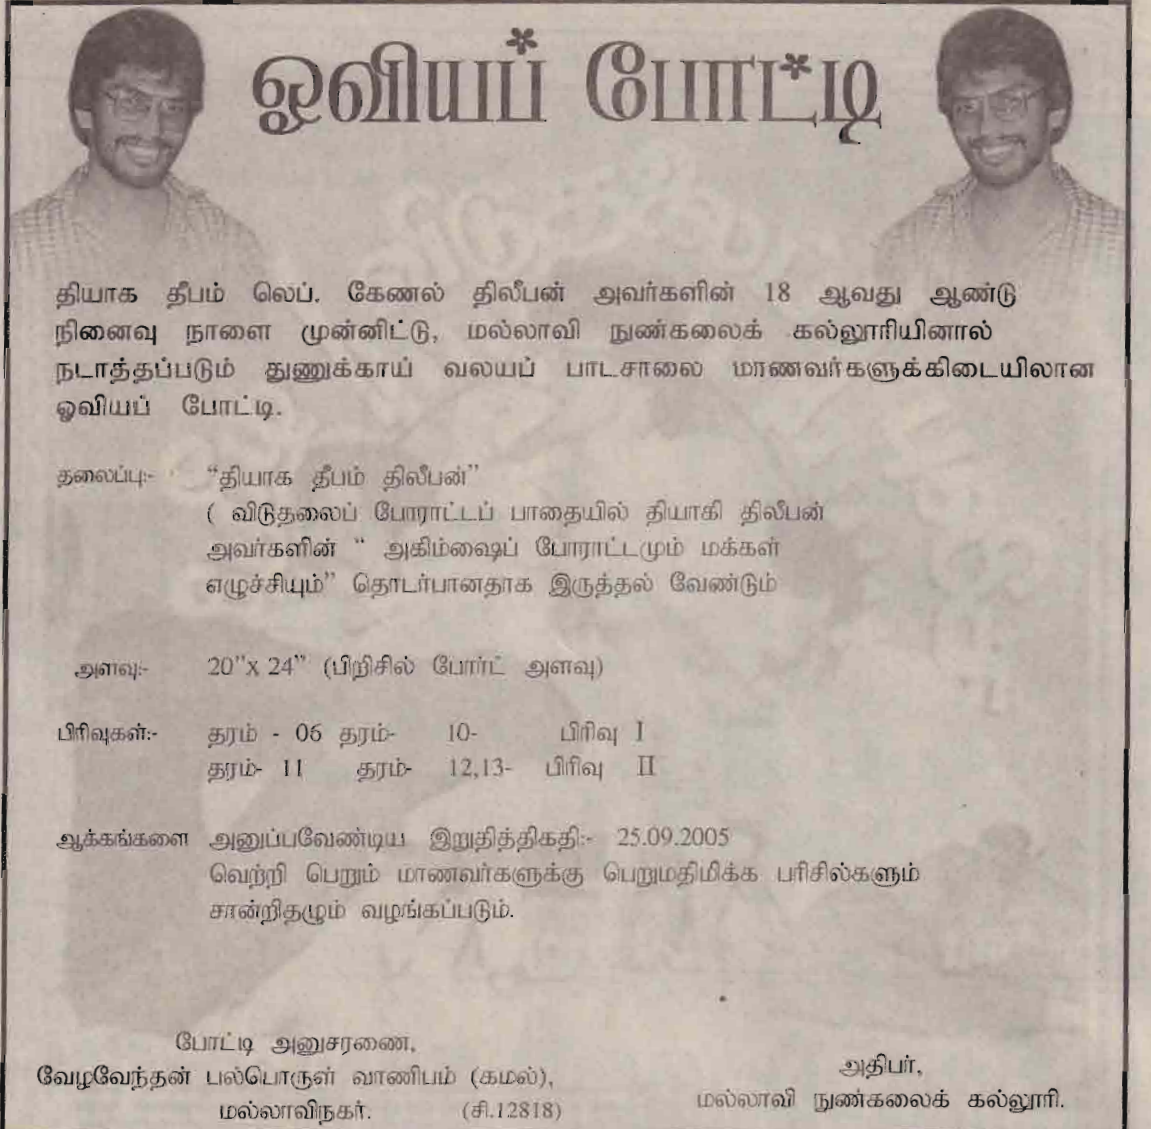 ஓவியப் போட்டி
தியாக தீபம் லெப். கேணல் திலீபன் அவர்களின் 18 ஆவது ஆண்டு
நினைவு நாளை முன்னிட்டு, மல்லாவி நுண்கலைக் கல்லூரியினால்
நடாத்தப்படும் துணுக்காய் வலயப் பாடசாலை மாணவர்களுக்கிடையிலான
ஓவியப் போட்டி.
தலைப்பு:- “தியாக தீபம் திலீபன்”
( விடுதலைப் போராட்டப் பாதையில் தியாகி திலீபன்
அவர்களின் “ அகிம்ஷைப் போராட்டமும் மக்கள்
எழுச்சியும்” தொடர்பானதாக இருத்தல் வேண்டும்
அளவு:- 20”x 24” (பிறிசில் போர்ட் அளவு)
பிரிவுகள்:- தரம் - 06 தரம்- 10- பிரிவு I
தரம்- 11 தரம்- 12,13- பிரிவு II
ஆக்கங்களை அனுப்பவேண்டிய இறுதித்திகதி:- 25.09.2005
வெற்றி பெறும் மாணவர்களுக்கு பெறுமதிமிக்க பரிசில்களும்
சான்றிதழும் வழங்கப்படும்.
போட்டி அனுசரணை,
வேழவேந்தன் பல்பொருள் வாணிபம் (கமல்),
மல்லாவிநகர். (சி.12818)
அதிபர்,
மல்லாவி நுண்கலைக் கல்லூரி.